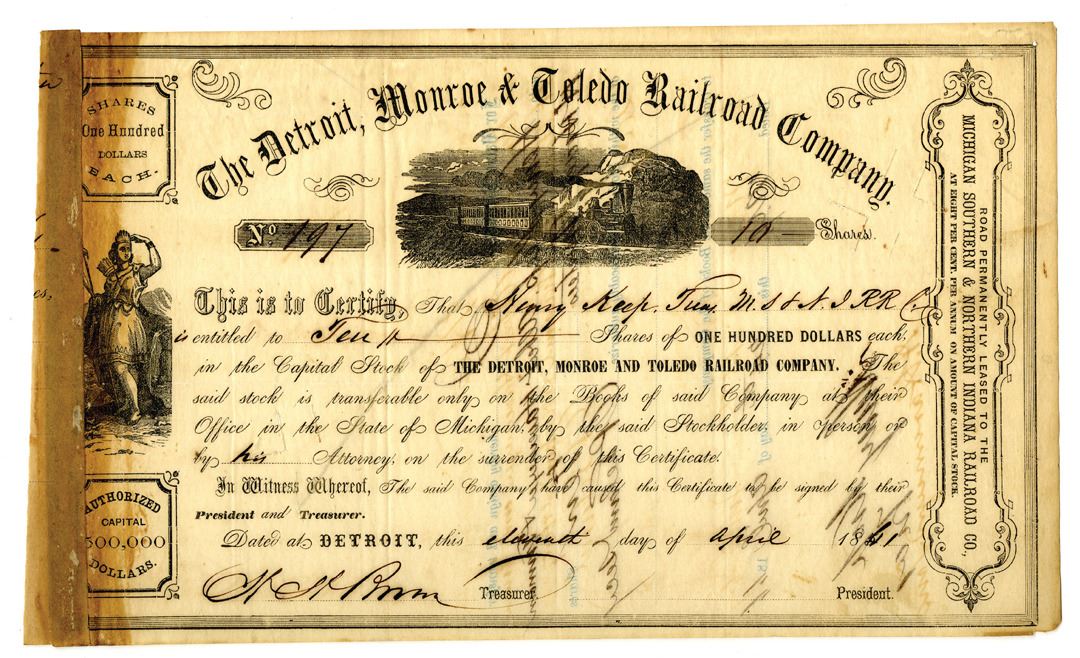 SHARES
One Hundred
DOLLARS
EACH.
The Detroit, Monroe & Toledo Railroad Company.
No 197
10 Shares.
This is to Certify, That Henry Keep, Treas. M. S & N. I RR Co
is entitled to Ten Shares of ONE HUNDRED DOLLARS each,
in the Capital Stock of THE DETROIT, MONROE AND TOLEDO RAILROAD COMPANY. The
said stock is transferable only on the Books of said Company at their
Office in the State of Michigan, by the said Stockholder, in person or
by his Attorney, on the surrender of this Certificate.
In Witness Whereof, The said Company have caused this Certificate to be signed by their
President and Treasurer.
Dated at DETROIT, this eleventh day of April 1861
Treasurer. President.
AUTHORIZED
CAPITAL
500,000
DOLLARS.
ROAD PERMANENTLY LEASED TO THE
MICHIGAN SOUTHERN & NORTHERN INDIANA RAILROAD CO.,
AT EIGHT PER CENT. PER ANNUM ON AMOUNT OF CAPITAL STOCK.